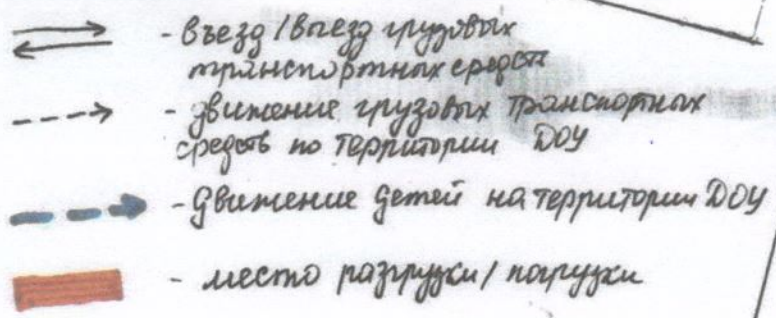 - въезд/выезд грузовых
транспортных средств
- движение грузовых транспортных
средств по территории ДОУ
- движение детей на территории ДОУ
- место разгрузки/погрузки